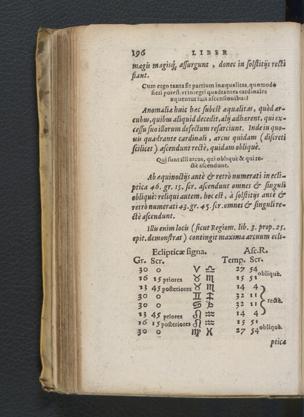 196 LIBER
magis magisq́; assurgunt, donec in solstitijs recti
fiant.
Cum ergo tanta sit partium inæqualitas, quomodo
fieri potest vt integri quadrantes cardinales
æquentur suis ascensionibus?
Anomalia huic hæc subest æqualitas, quòd ar-
cubus, quibus aliquid decedit, alij adhærent, qui ex-
cessu suo illorum defectum resarciunt. Inde in quo-
uis quadrante cardinali, arcus quidam (discreti
scilicet) ascendunt rectè, quidam obliquè.
Qui sunt illi arcus, qui obliquè & qui re-
ctè ascendunt.
Ab equinoctijs antè & retrò numerati in ecli-
ptica 46. gr. 15. scr. ascendunt omnes & singuli
obliquè: reliqui autem, hoc est, à solstitijs antè &
retrò numerati 43. gr. 45. scr. omnes & singuli re-
ctè ascendunt.
Illis enim locis (sicut Regiom. lib. 3. prop. 25.
epit. demonstrat) contingit maxima arcuum ecli-
Eclipticæ signa. Asc.R.
Gr. Scr. Temp. Scr.
30 0 ♈ ♎ 27 54
obliquè.
16 15 priores ♉ ♏ 15 51
13 45 posteriores ♉ ♏ 14 4
30 0 ♊ ♐ 32 11
rectè.
30 0 ♋ ♑ 32 11
13 45 priores ♌ ♒ 14 4
16 15 posteriores ♌ ♒ 15 51
obliquè.
30 0 ♍ ♓ 27 54
ptica